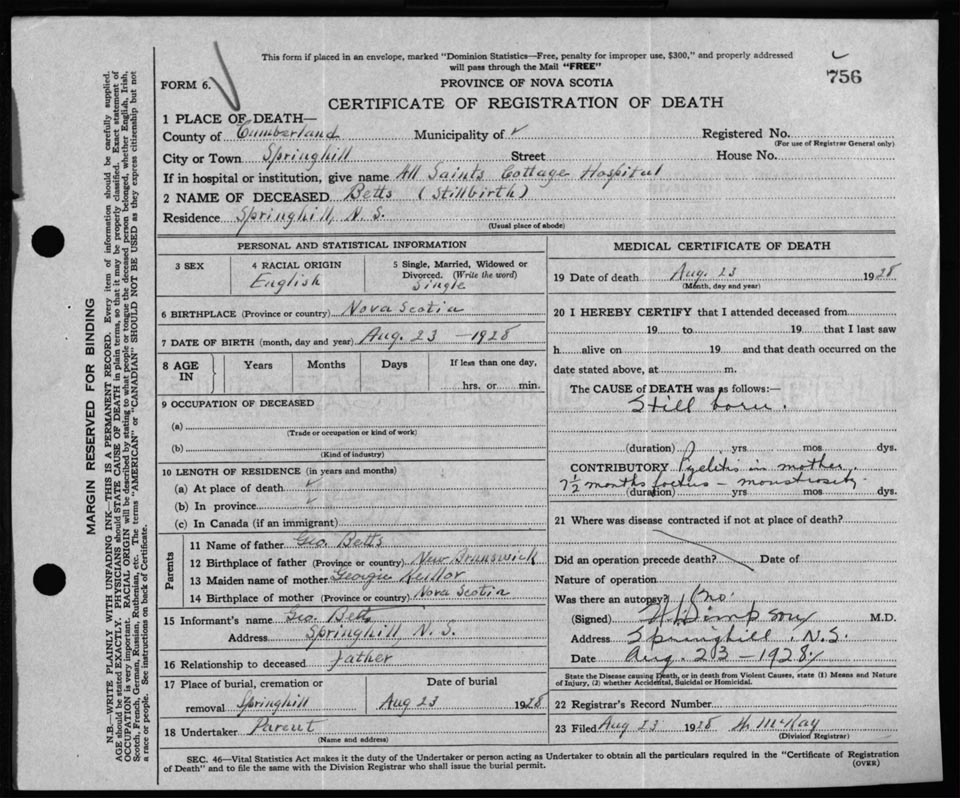 This form if placed in an envelope, marked "Dominion Statistics—Free, penalty for improper use, $300," and properly addressed
will pass through the Mail "FREE"
756
FORM 6.
PROVINCE OF NOVA SCOTIA
CERTIFICATE OF REGISTRATION OF DEATH
1 PLACE OF DEATH—
County of Cumberland Municipality of Registered No.
(For use of Registrar General only)
City or Town Springhill Street House No.
If in hospital or institution, give name All Saints Cottage Hospital
2 NAME OF DECEASED Betts (Stillbirth)
Residence Springhill, N.S.
(Usual place of abode)
PERSONAL AND STATISTICAL INFORMATION
3 SEX
4 RACIAL ORIGIN
English
5 Single, Married, Widowed or
Divorced. (Write the word)
Single
6 BIRTHPLACE (Province or country) Nova Scotia
7 DATE OF BIRTH (month, day and year) Aug. 23 - 1928
8 AGE IN Years Months Days If less than one day,
hrs. or min.
9 OCCUPATION OF DECEASED
(a)
(Trade or occupation or kind of work)
(b)
(Kind of industry)
10 LENGTH OF RESIDENCE (in years and months)
(a) At place of death
(b) In province
(c) In Canada (if an immigrant)
Parents
11 Name of father Geo. Betts
12 Birthplace of father (Province or country) New Brunswick
13 Maiden name of mother Georgie
14 Birthplace of mother (Province or country) Nova Scotia
15 Informant's name Geo. Betts
Address Springhill N.S.
16 Relationship to deceased Father
17 Place of burial, cremation or Date of burial
removal Springhill Aug 23 1928
18 Undertaker Parent
(Name and address)
MEDICAL CERTIFICATE OF DEATH
19 Date of death Aug. 23 1928
(Month, day and year)
20 I HEREBY CERTIFY that I attended deceased from
19 to 19 that I last saw
h alive on 19 and that death occurred on the
date stated above, at m.
The CAUSE of DEATH was as follows:—
Still born.
(duration) yrs mos dys.
CONTRIBUTORY Pyelitis in mother.
7½ months foetus - monstrosity
(duration) yrs. mos. dys.
21 Where was disease contracted if not at place of death?
Did an operation precede death? Date of
Nature of operation
Was there an autopsy? No.
(Signed) M.D.
Address Springhill. N.S.
Date Aug. 23 - 1928
State the Disease causing Death, or in death from Violent Causes, state (1) Means and Nature
of Injury, (2) whether Accidental, Suicidal or Homicidal.
22 Registrar's Record Number
23 Filed Aug 23 1928 H. McKay
(Division Registrar)
SEC. 46—Vital Statistics Act makes it the duty of the Undertaker or person acting as Undertaker to obtain all the particulars required in the "Certificate of Registration
of Death" and to file the same with the Division Registrar who shall issue the burial permit.
(OVER)
MARGIN RESERVED FOR BINDING
N.B.—WRITE PLAINLY WITH UNFADING INK—THIS IS A PERMANENT RECORD. Every item of information should be carefully supplied.
AGE should be stated EXACTLY. PHYSICIANS should STATE CAUSE OF DEATH in plain terms, so that it may be properly classified. Exact statement of
OCCUPATION is very important. RACIAL ORIGIN will be described by stating to what people or tongue the deceased person belonged, whether English, Irish,
Scotch, French, German, Russian, Ruthenian, etc. The terms "AMERICAN" or "CANADIAN" SHOULD NOT BE USED as they express citizenship but not
a race or people. See instructions on back of Certificate.